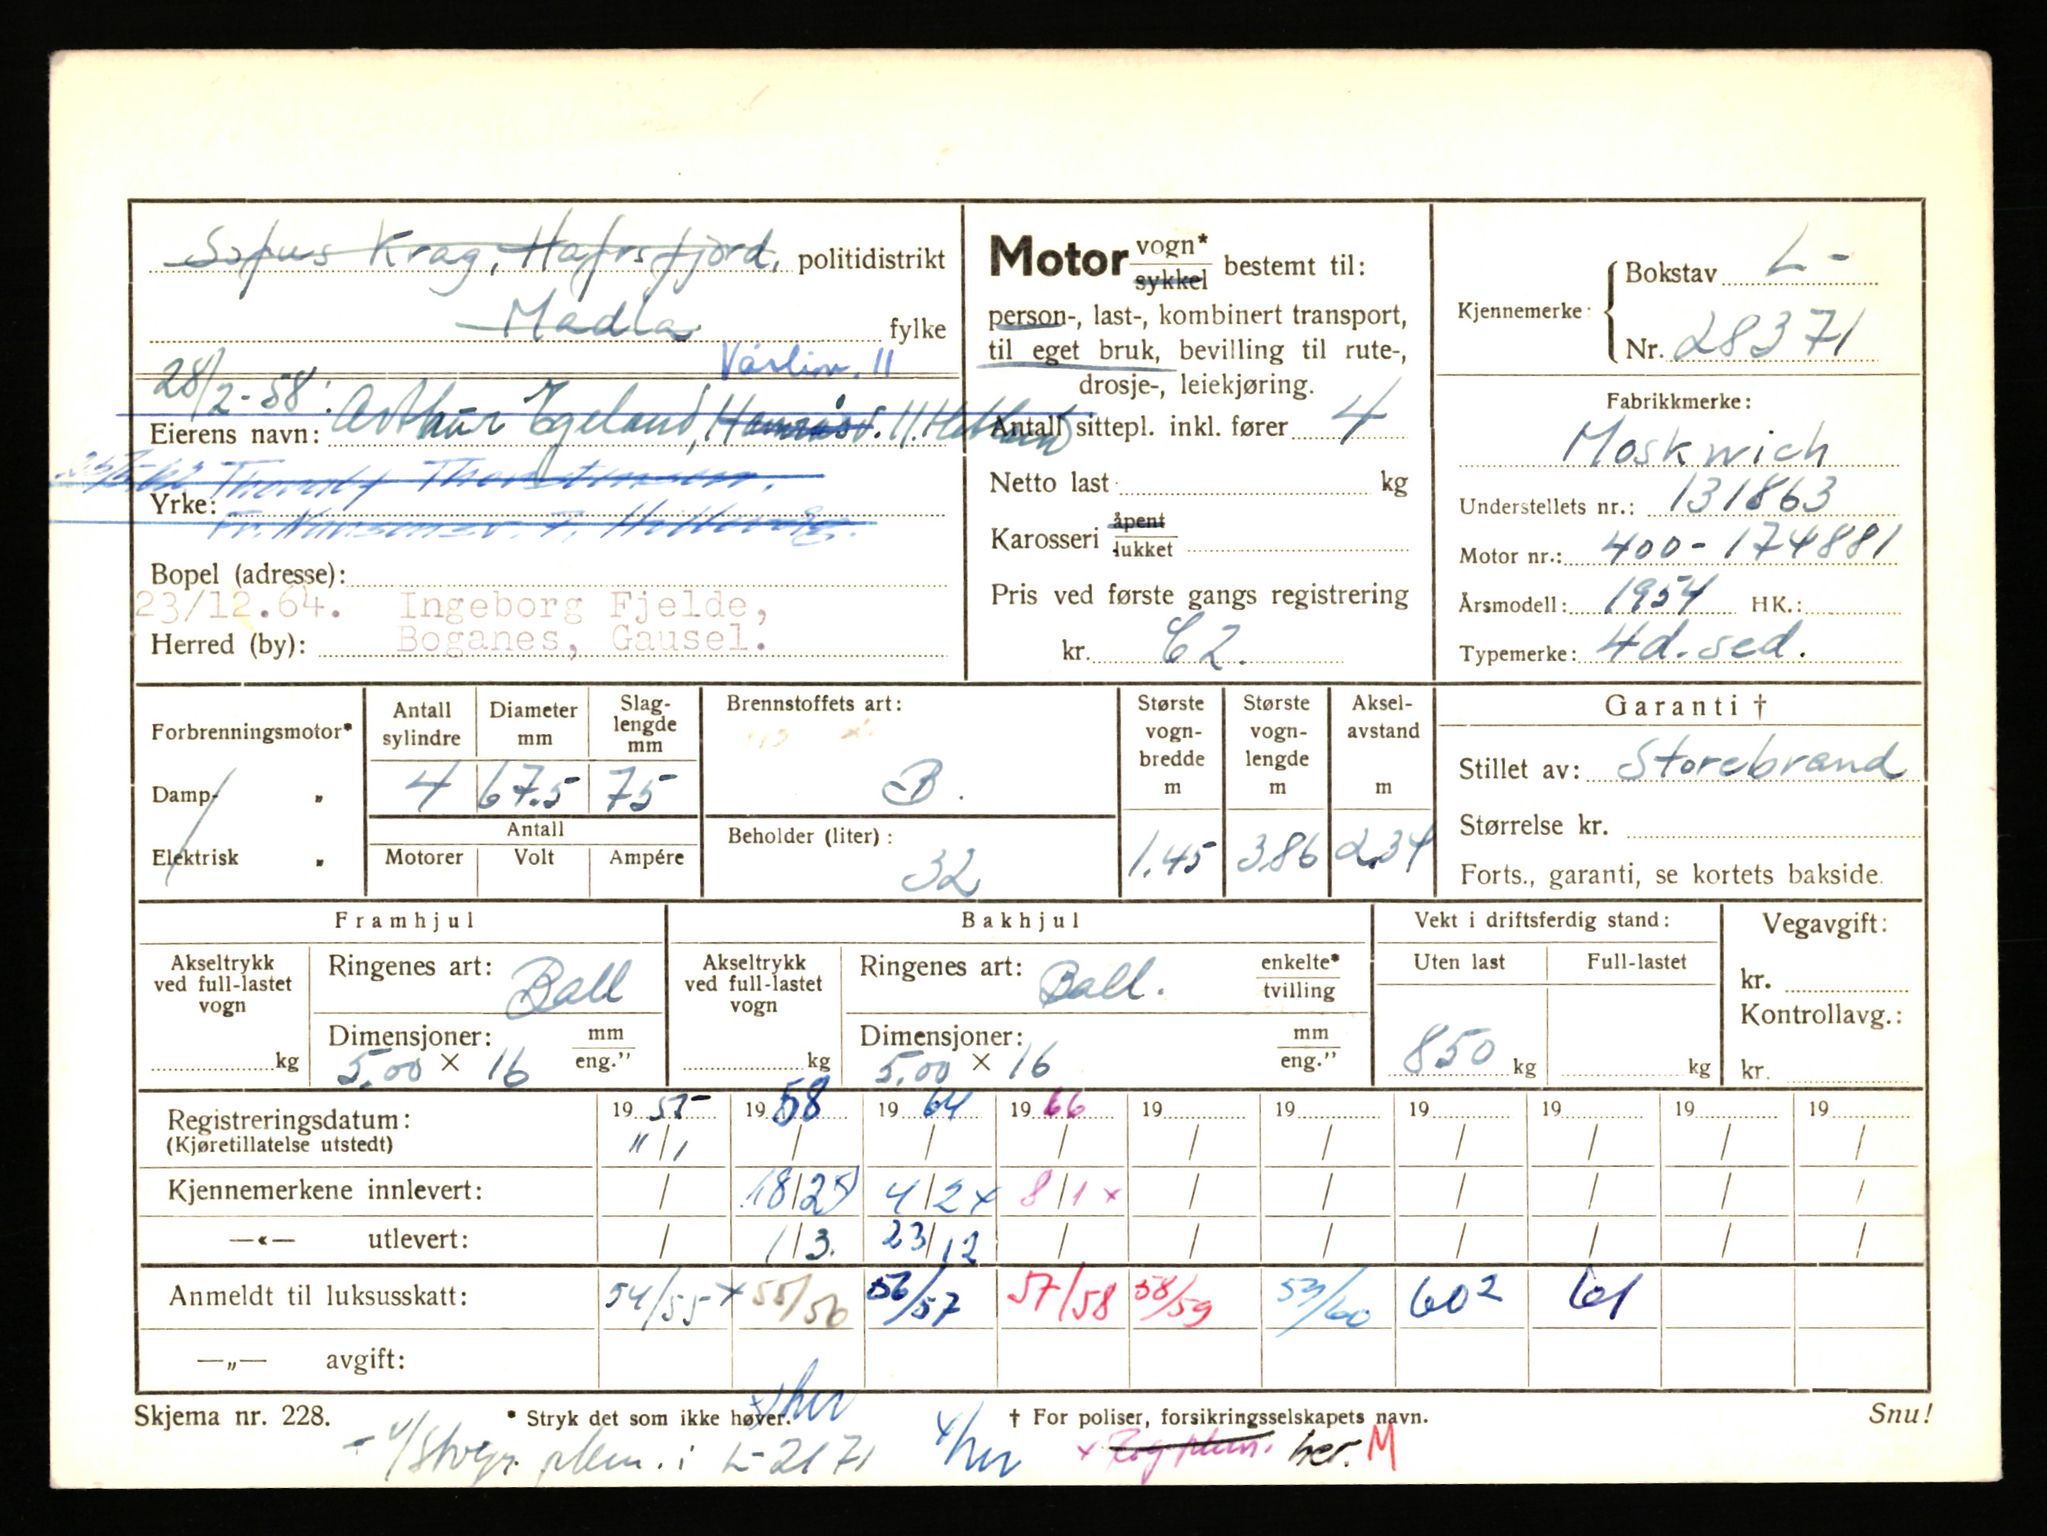 Sofus Krag, Hafrsfjord, politidistrikt
Madla fylke
28/2-58: Vårlivn. 11
Eierens navn: Arthur Egeland,
Yrke:
Bopel (adresse):
23/12.64. Ingeborg Fjelde,
Herred (by): Boganes, Gausel.
Motor vogn* sykkel bestemt til:
person-, last-, kombinert transport,
til eget bruk, bevilling til rute-,
drosje-, leiekjøring.
Antall sittepl. inkl. fører 4
Netto last kg
Karosseri åpent lukket
Pris ved første gangs registrering
kr. C2.
Kjennemerke: Bokstav L-
Nr. 28371
Fabrikkmerke:
Moskwich
Understellets nr.: 131863
Motor nr.: 400-174881
Årsmodell: 1954 HK.:
Typemerke: 4d. sed.
Forbrenningsmotor*
Damp- „
Elektrisk „
Antall sylindre Diameter mm Slaglengde mm
4 67.5 75
Antall
Motorer Volt Ampére
Brennstoffets art:
B.
Beholder (liter):
32
Største vognbredde m
1.45
Største vognlengde m
3.86
Akselavstand m
2.34
Garanti †
Stillet av: Storebrand
Størrelse kr.
Forts., garanti, se kortets bakside.
Framhjul
Akseltrykk ved full-lastet vogn
kg
Ringenes art: Ball
Dimensjoner: mm
5,00 × 16 eng.”
Bakhjul
Akseltrykk ved full-lastet vogn
kg
Ringenes art: Ball. enkelte* tvilling
Dimensjoner: mm
5,00 × 16 eng.”
Vekt i driftsferdig stand:
Uten last Full-lastet
850 kg kg
Vegavgift:
kr.
Kontrollavg.:
kr.
Registreringsdatum: 1955 1958 1964 1966 19 19 19 19 19 19
(Kjøretillatelse utstedt) 11/1 / / / / / / / / /
Kjennemerkene innlevert: / 18/2 4/2 x 8/1 x / / / / / /
—«— utlevert: / 1/3. 23/12 / / / / / / /
Anmeldt til luksusskatt: 54/55 x 55/56 56/57 57/58 58/59 59/60 60 2 61
—„— avgift:
Skjema nr. 228. * Stryk det som ikke høver. x her † For poliser, forsikringsselskapets navn. Snu!
plem. i L-2171 x/her x her. M